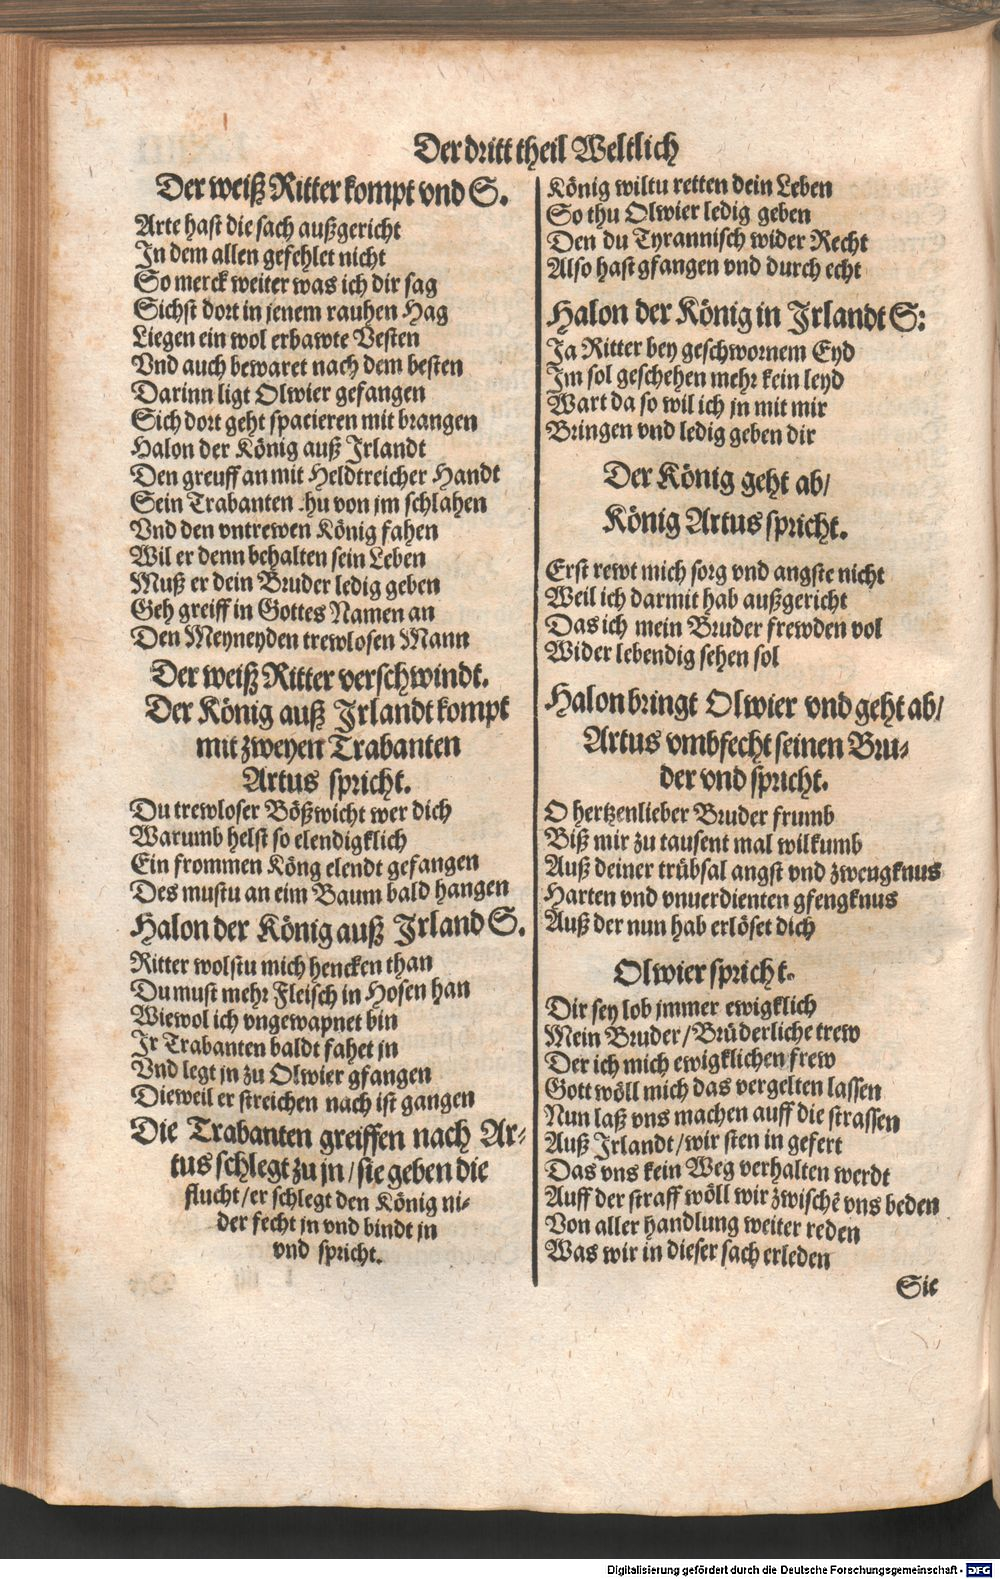 Der dritt theil Weltlich
Der weiß Ritter kompt vnd S.
Arte hast die sach außgericht
In dem allen gefehlet nicht
So merck weiter was ich dir sag
Sichst dort in jenem rauhen Hag
Liegen ein wol erbawte Vesten
Vnd auch bewaret nach dem besten
Darinn ligt Olwier gefangen
Sich dort geht spacieren mit brangen
Halon der König auß Jrlandt
Den greuff an mit Heldtreicher Handt
Sein Trabanten thu von jm schlahen
Vnd den vntrewen König fahen
Wil er denn behalten sein Leben
Muß er dein Bruder ledig geben
Geh greiff in Gottes Namen an
Den Meyneyden trewlosen Mann
Der weiß Ritter verschwindt.
Der König auß Jrlandt kompt
mit zweyen Trabanten
Artus spricht.
Du trewloser Bößwicht wer dich
Warumb helst so elendigklich
Ein frommen Köng elendt gefangen
Des mustu an eim Baum bald hangen
Halon der König auß Jrland S.
Ritter wolstu mich hencken than
Du must mehr Fleisch in Hosen han
Wiewol ich vngewapnet bin
Jr Trabanten baldt fahet jn
Vnd legt jn zu Olwier gfangen
Dieweil er streichen nach ist gangen
Die Trabanten greiffen nach Ar-
tus schlegt zu jn/sie geben die
flucht/er schlegt den König ni-
der fecht jn vnd bindt jn
vnd spricht.
König wiltu retten dein Leben
So thu Olwier ledig geben
Den du Tyrannisch wider Recht
Also hast gfangen vnd durch echt
Halon der König in Jrlandt S:
Ja Ritter bey geschwornem Eyd
Jm sol geschehen mehr kein leyd
Wart da so wil ich jn mit mir
Bringen vnd ledig geben dir
Der König geht ab/
König Artus spricht.
Erst rewt mich sorg vnd angste nicht
Weil ich darmit hab außgericht
Das ich mein Bruder frewden vol
Wider lebendig sehen sol
Halon bringt Olwier vnd geht ab/
Artus vmbfecht seinen Bru-
der vnd spricht.
O hertzenlieber Bruder frumb
Biß mir zu tausent mal wilkumb
Auß deiner trübsal angst vnd zwengknus
Harten vnd vnuerdienten gfengknus
Auß der nun hab erlöset dich
Olwier spricht.
Dir sey lob jmmer ewigklich
Mein Bruder/Brüderliche trew
Der ich mich ewigklichen frew
Gott wöll mich das vergelten lassen
Nun laß vns machen auff die strassen
Auß Jrlandt/wir sten in gefert
Das vns kein Weg verhalten werdt
Auff der straß wöll wir zwischē vns beden
Von aller handlung weiter reden
Was wir in dieser sach erleden
Sie
Digitalisierung gefördert durch die Deutsche Forschungsgemeinschaft - DFG